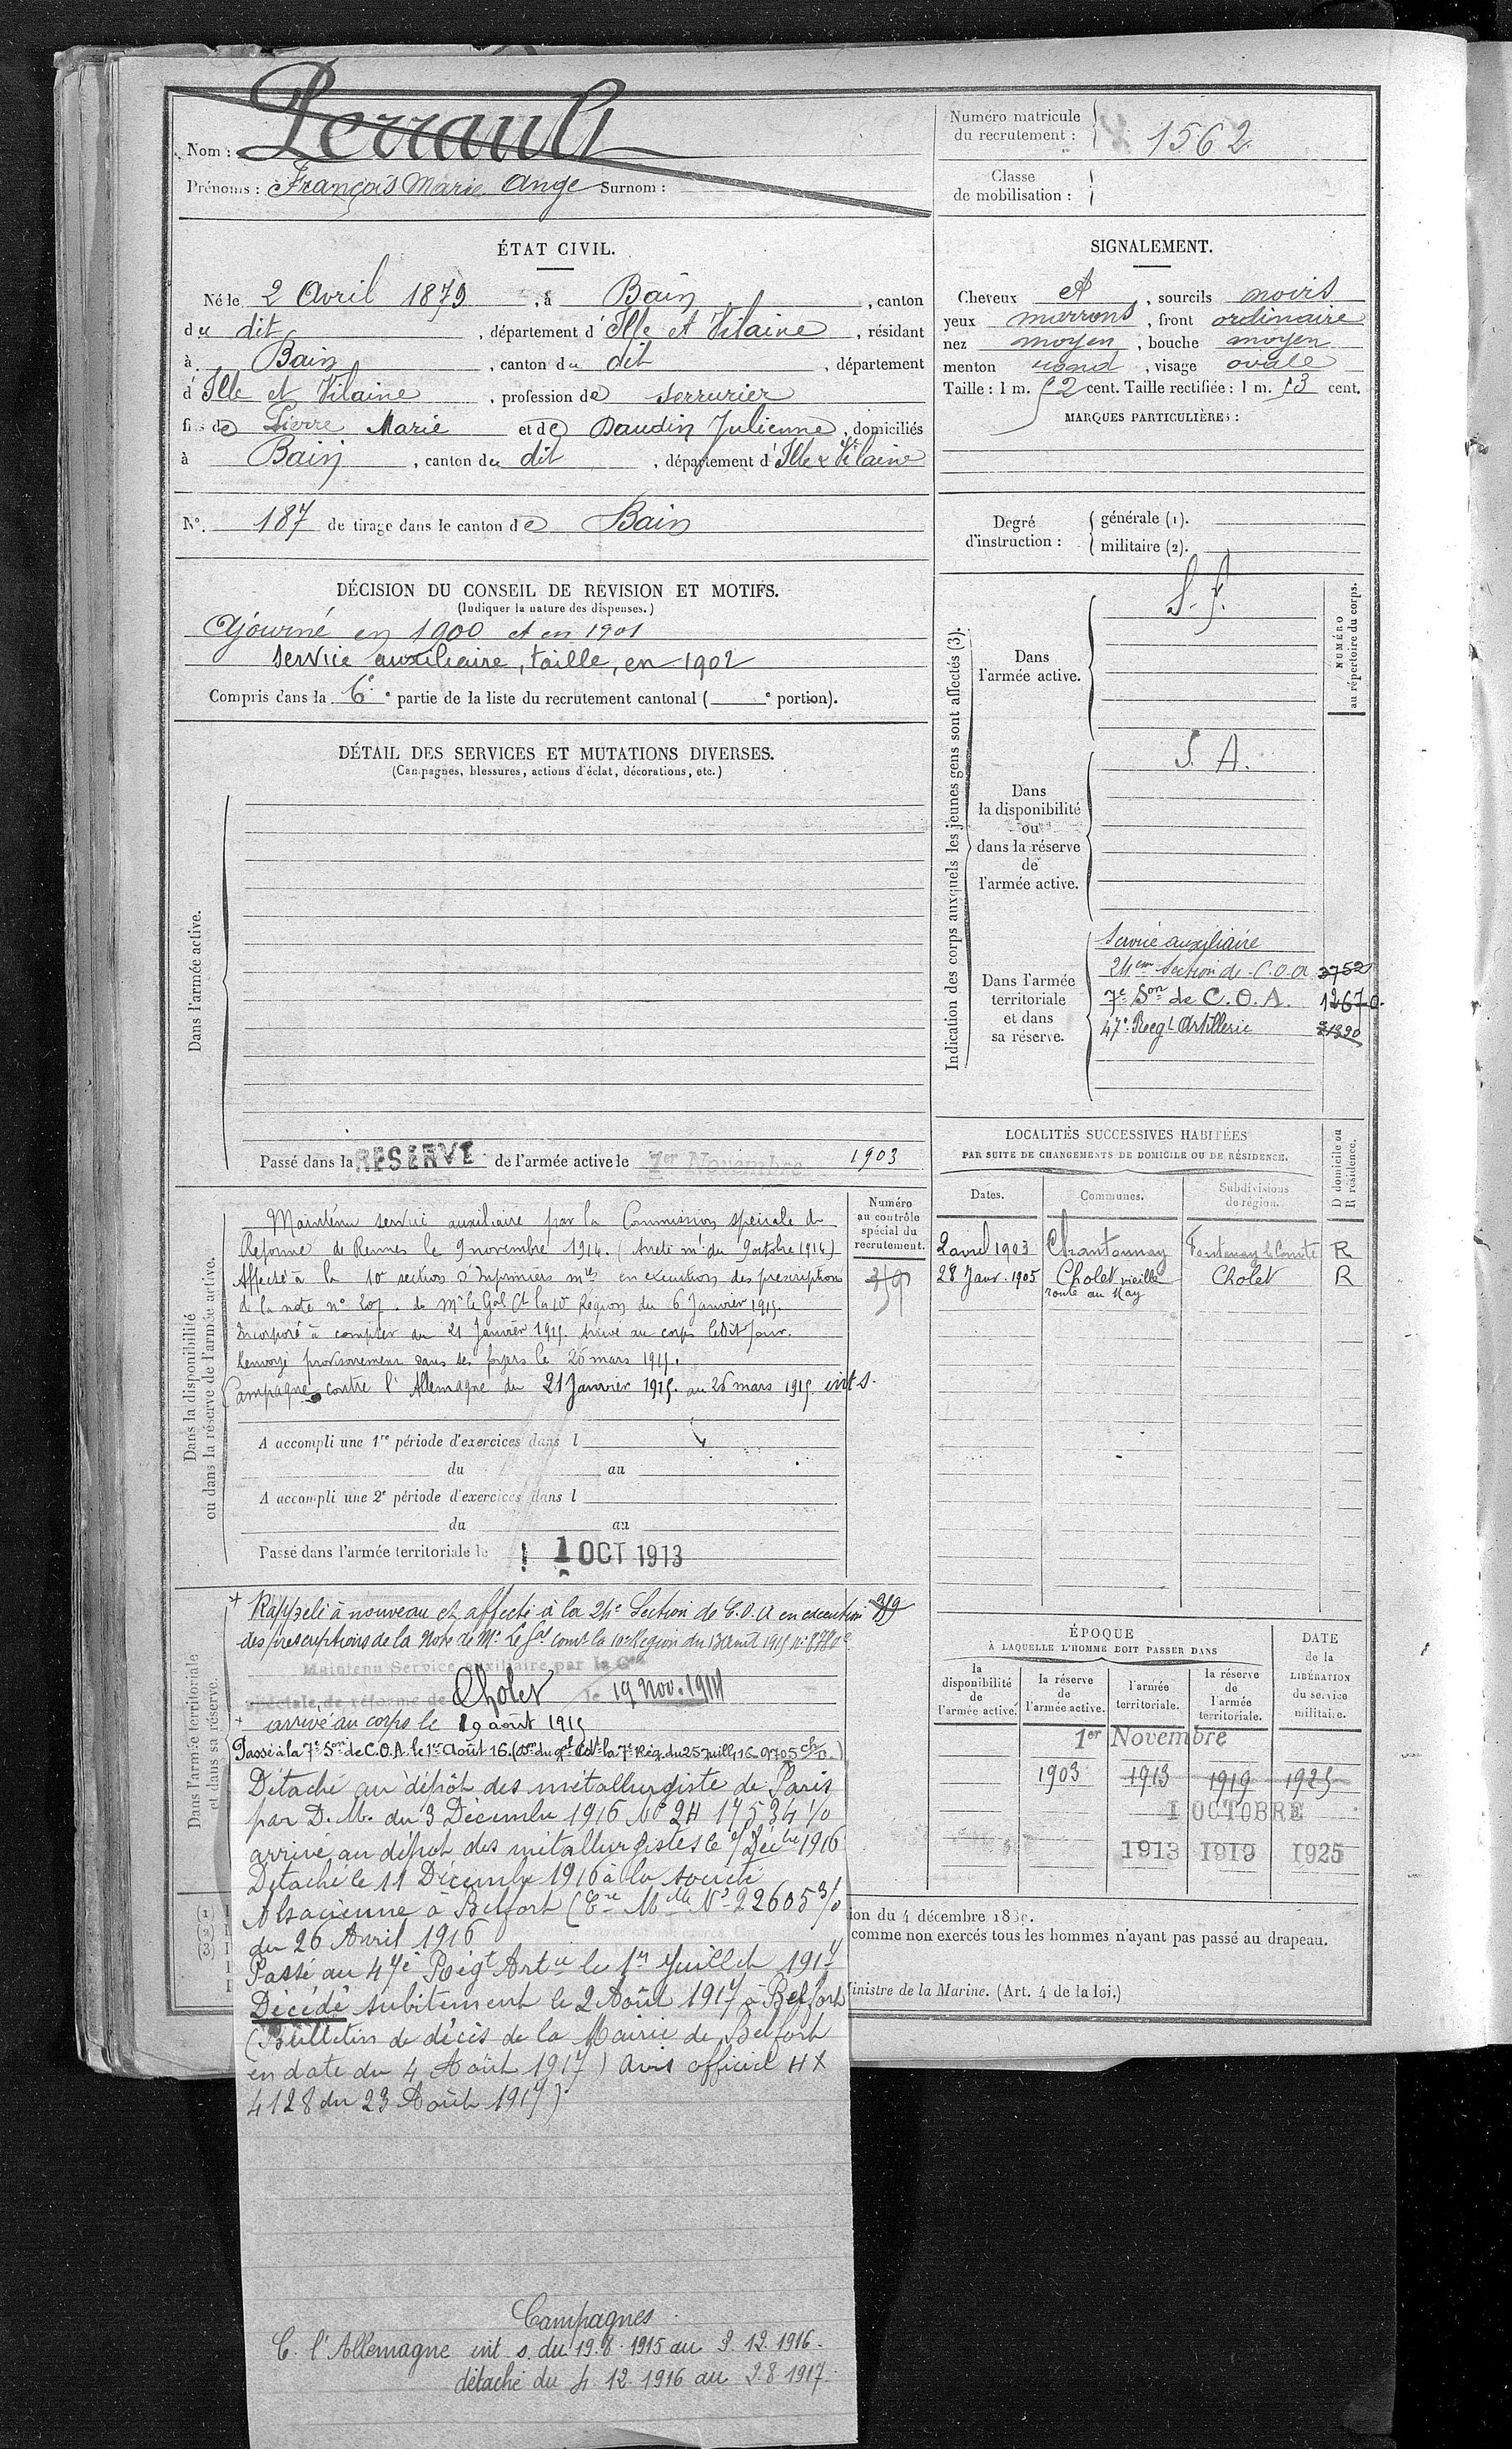 Nom : Perrault
Prénoms : François Marie Ange Surnom :
Numéro matricule du recrutement : 1562
Classe de mobilisation :
ÉTAT CIVIL.
Né le 2 Avril 1879, à Bain, canton
du dit, département d'Ille et Vilaine, résidant
à Bain, canton du dit, département
d'Ille et Vilaine, profession de serrurier
fils de Pierre Marie et de Daudin Julienne, domiciliés
à Bain, canton du dit, département d'Ille & Vilaine
N° 187 de tirage dans le canton de Bain
SIGNALEMENT.
Cheveux et, sourcils noirs
yeux marrons, front ordinaire
nez moyen, bouche moyen
menton rond, visage ovale
Taille : 1 m. 52 cent. Taille rectifiée : 1 m. 53 cent.
MARQUES PARTICULIÈRES :
Degré d'instruction :
générale (1).
militaire (2).
DÉCISION DU CONSEIL DE REVISION ET MOTIFS.
(Indiquer la nature des dispenses.)
Ajourné en 1900 et en 1901
service auxiliaire, taille, en 1902
Compris dans la 6e e partie de la liste du recrutement cantonal ( e portion).
DÉTAIL DES SERVICES ET MUTATIONS DIVERSES.
(Campagnes, blessures, actions d'éclat, décorations, etc.)
Dans l'armée active.
Passé dans la RESERVE de l'armée active le 1er Novembre 1903
Indication des corps auxquels les jeunes gens sont affectés (3).
NUMÉRO au répertoire du corps.
Dans l'armée active.
Dans la disponibilité ou dans la réserve de l'armée active.
S. A.
Dans l'armée territoriale et dans sa réserve.
Service auxiliaire
24em Section de C.O.A 3752
7e Son de C.O.A. 12670.
47e Regt Artillerie 21320
Dans la disponibilité ou dans la réserve de l'armée active.
Numéro au contrôle spécial du recrutement.
Maintenu service auxiliaire par la Commission spéciale de
Réforme de Rennes le 9 novembre 1914. (Arrêté mel du 9 octobre 1914)
Affecté à la 10e section d'Infirmiers mres en exécution des prescriptions
de la note n° 207. de Mr le Gal Ct la 10e Région du 6 Janvier 1915.
Incorporé à compter du 21 Janvier 1915. Arrivé au corps ledit jour.
Renvoyé provisoirement dans ses foyers le 26 mars 1915.
Campagne contre l'Allemagne du 21 Janvier 1915. au 26 mars 1915 int s.
A accompli une 1re période d'exercices dans l
du au
A accompli une 2e période d'exercices dans l
du au
Passé dans l'armée territoriale le 1 OCT 1913
LOCALITÉS SUCCESSIVES HABITÉES
PAR SUITE DE CHANGEMENTS DE DOMICILE OU DE RÉSIDENCE.
Dates. Communes. Subdivisions de région. D domicile ou R résidence.
2 avril 1903 Chantonnay Fontenay le Comte R
28 Janv. 1905 Cholet vieille route du May Cholet R
Dans l'armée territoriale et dans sa réserve.
+ Rappelé à nouveau et affecté à la 24e Section de C.O.A en exécution 319
des prescriptions de la Note de Mr Le Gal comt la 10e Region du 13 Août 1915 n° 8780c
Maintenu Service auxiliaire par la Con
spéciale de réforme de Cholet le 19 Nov. 1914
+ arrivé au corps le 19 août 1915
Passé à la 7e Son de C.O.A. le 1er Août 16. (Don du Gal Ct la 7e Rég. du 25 Juill. 16
Détaché au dépôt des métallurgiste de Paris
par D.M. du 3 Décembre 1916 N° 2H 17534 1/0
arrivé au dépot des métallurgistes le 4 Décbre 1916
Détaché le 11 Décembre 1916 à la société
Alsacienne à Belfort (Cre Mlle N° 22605 3/0
du 26 Avril 1916
Passé au 47e Régt Artie le 1er Juillet 1917
Décédé subitement le 2 Août 1917 à Belfort
(Bulletin de décès de la Mairie de Belfort
en date du 4 Août 1917) Avis officiel HX
4128 du 23 Août 1917)
Campagnes
C. l'Allemagne int s. du 19.8.1915 au 3.12.1916.
détaché du 4.12.1916 au 2.8.1917.
ÉPOQUE
À LAQUELLE L'HOMME DOIT PASSER DANS
DATE de la LIBÉRATION du service militaire.
la disponibilité de l'armée active.
la réserve de l'armée active.
l'armée territoriale.
la réserve de l'armée territoriale.
1er Novembre
1903 1913 1919 1925
1 OCTOBRE
1913 1919 1925
(1)
(2)
(3)
ion du 4 décembre 1889.
comme non exercés tous les hommes n'ayant pas passé au drapeau.
inistre de la Marine. (Art. 4 de la loi.)